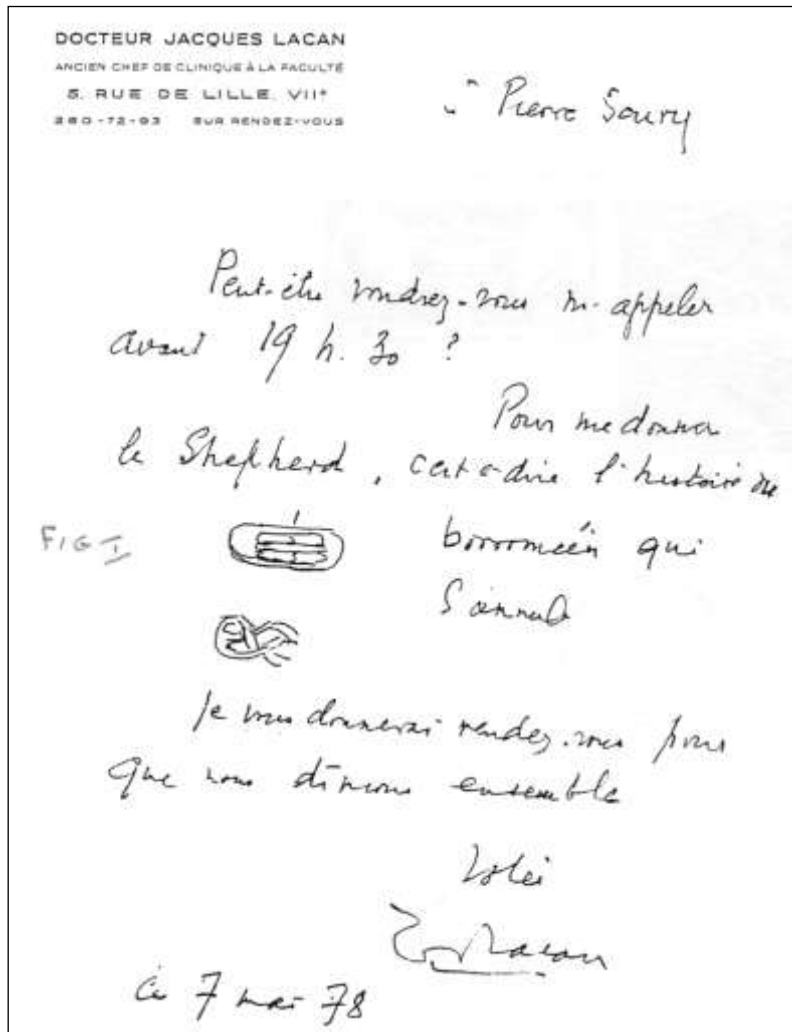 DOCTEUR JACQUES LACAN
ANCIEN CHEF DE CLINIQUE À LA FACULTÉ
5, RUE DE LILLE. VIIe
260-72-93 SUR RENDEZ-VOUS
à Pierre Soury
Peut-être voudrez-vous m'appeler
avant 19 h. 30 ?
Pour me donner
le Shepherd, c'est-à-dire l'histoire du
FIG I
borroméen qui
s'annule
Je vous donnerai rendez-vous pour
que nous dînions ensemble
Votre
J Lacan
Ce 7 mai 78